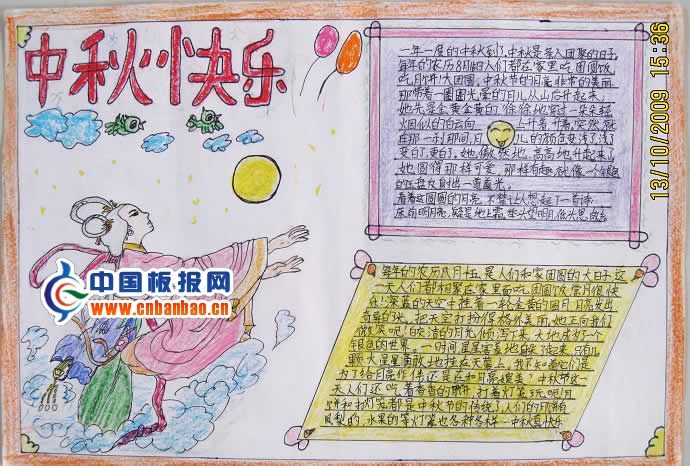 中秋快乐
一年一度的中秋到了，中秋是亲人团聚的日子，
每年的农历8月15人们都在家里吃团圆饭
吃月饼大团圆。中秋节的月亮非常的美丽
那带着一圈圈光晕的月儿从山后升起来，
她先是金黄金黄的，徐徐地穿过一朵朵轻
烟似的白云向 上升着，升着，突然就
在那一刹那间，月 儿的颜色变浅了，浅了
变白了，更白了，她傲然地，高高地升起来了，
她圆得那样可爱，那样有趣，就像一个银色
的 盘发射出一道蓝光。
看着这圆圆的月亮，不禁让人想起了一首诗
床前明月光，疑是地上霜，举头望明月，低头思故乡
每年的农历八月十五，是人们和家团圆的大日子，这
一天人们都相聚在家里面吃团圆饭，赏月，很快
在！深蓝的天空中挂着一轮金黄的圆月，月亮发出
着 白光，把天空打扮得格外美丽，她正向我们
微笑呢！皎洁的月光倾泻下来，大地成为了个
银色的世界。一时间，星星害羞地躲了起来，只有几
颗大星星勇敢地挂在天幕上，我不知道它们是
为了给月亮作伴，还是在和月亮媲美？中秋节这一
天人们还吃着香香的月饼，打着灯笼玩呢！月
饼和灯笼都是中秋节的传统了，人们的月饼有
凤梨的，水果的等，灯笼也各种各样……中秋真快乐
中国板报网
www.cnbanbao.cn
13/10/2009 15:36